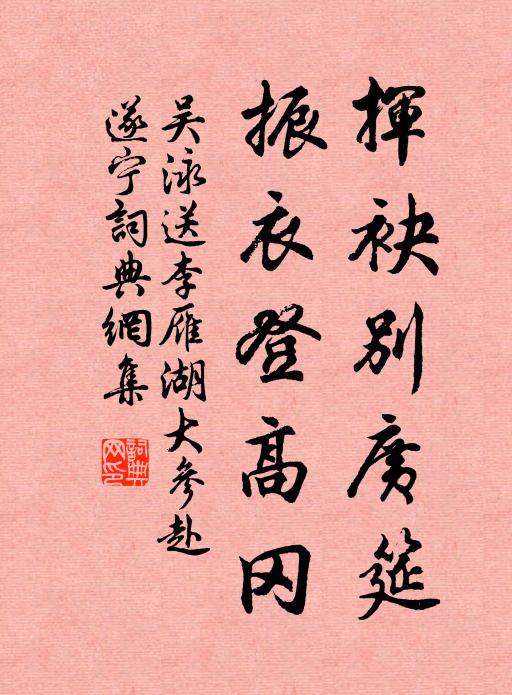 揮袂別廣筵
振衣登高冈
吴泳送李雁湖大參赴
遂宁詞典網集
詞典网印